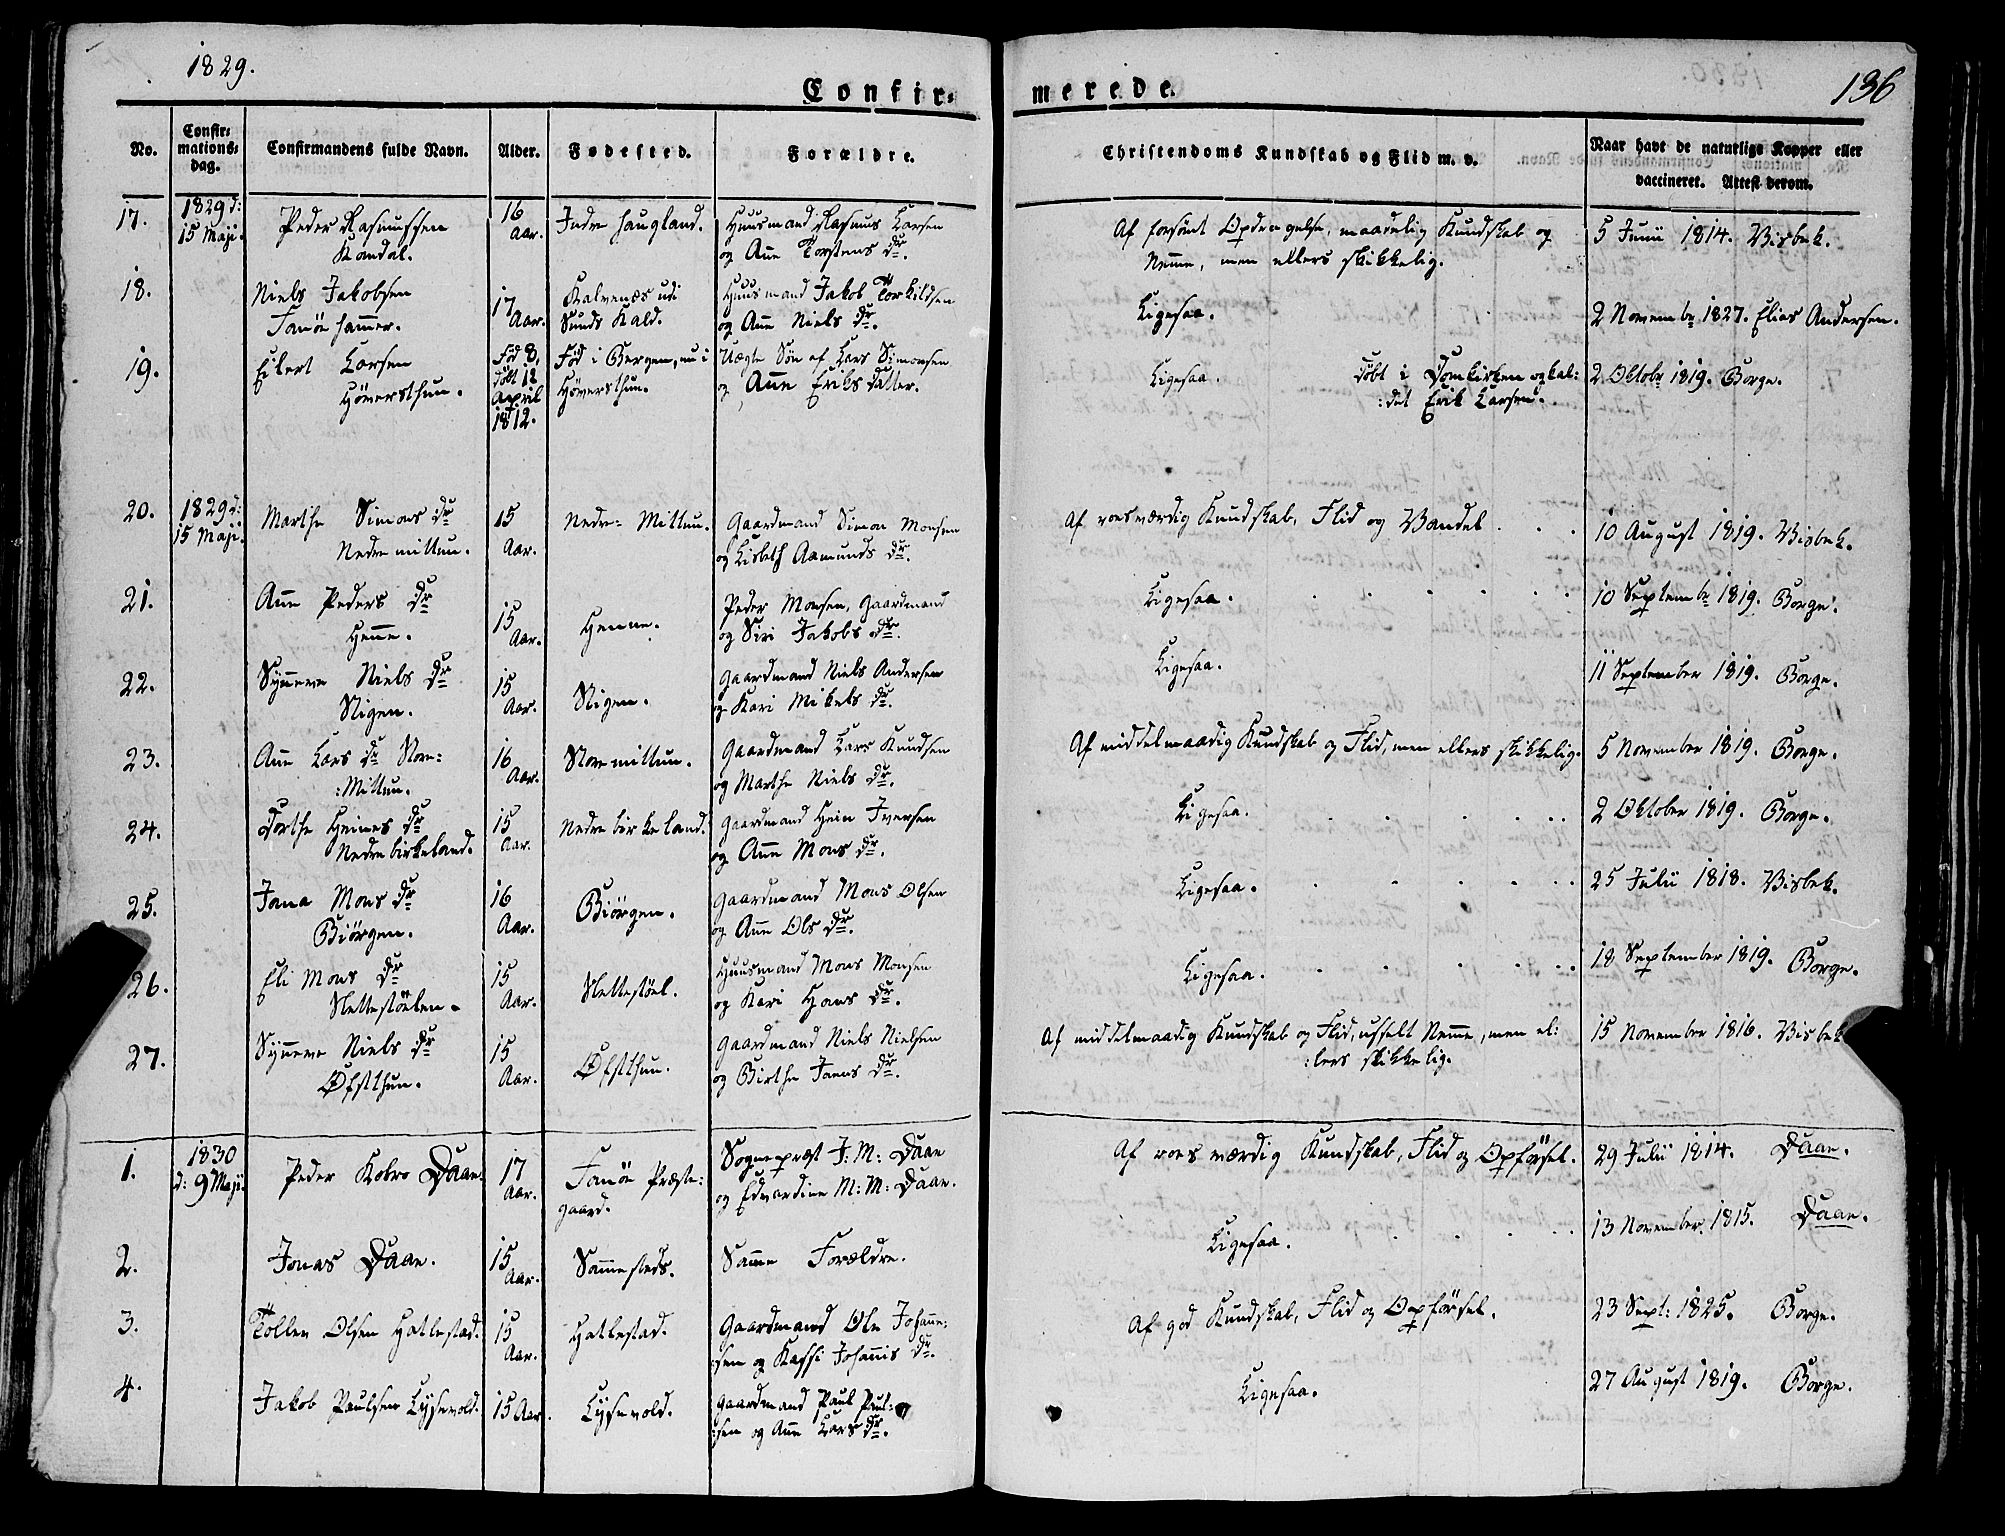 1829.
136
Confir=
merede
No.
Confir=
mations=
dag.
Confirmandens fulde Navn.
Alder.
Fødested.
Forældre.
Christendoms Kundskab og Flid m. v.
Naar havt de naturlige Kopper eller
vaccineret. Attest derom.
17. 1829 d: 15 Maji. Peder Rasmussen 16 Aar. Indre Haugland. Huusmand Rasmus Larsen
og Añe Torstens Dr.
Af forsømt Opdragelse, maadelig Kundskab og
Nemme, men ellers skikkelig.
5 Junii 1814. Visbek.
18. Niels Jakobsen
Fanøe Hammer.
17 Aar. Kalvenæs udi
Sunds Kald.
Huusmand Jakob Torkildsen
og Añe Niels Dr.
Ligesaa.
2 Novembr 1827. Elias Andersen.
19. Eilert Larsen
Høversthun.
Fød 8,
døbt 12
April
1812.
Fød i Bergen, nu i
Høversthun.
Uægte Søn af Lars Simonsen
og Añe Eriks Datter.
Ligesaa. Døbt i Domkirken og kal:
:det Erik Larsen.
2 Oktobr 1819. Borge.
20. 1829 d: 15 Maji. Marthe Simons Dr
Nedre mittun.
15 Aar. Nedre= Mittun. Gaardmand Simon Monsen
og Lisbeth Aamunds Dr.
Af roesværdig Kundskab, Flid og Vandel
10 August 1819. Visbek.
21. Añe Peders Dr
Heñe.
15 Aar. Henne. Peder Monsen, Gaardmand
og Siri Jakobs Dr.
Ligesaa.
10 Septembr 1819. Borge.
22. Syñeve Niels Dr
Stigen.
15 Aar. Stigen. Gaardmand Niels Andersen
og Kari Mikels Dr.
Ligesaa.
11 September 1819. Borge.
23. Añe Lars Dr Store=
:Mittun.
16 Aar. Store mittun. Gaardmand Lars Knudsen
og Marthe Niels Dr.
Af middelmaadig Kundskab og Flid, men ellers skikkelig.
5 November 1819. Borge.
24. Dorthe Heines Dr
Nedre birkeland.
15 Aar. Nedre birkeland. Gaardmand Hein Iversen
og Añe Mons Dr.
Ligesaa.
2 Oktober 1819. Borge.
25. Jana Mons Dr
Biørgen.
16 Aar. Biørgen. Gaardmand Mons Olsen
og Añe Ols Dr.
Ligesaa.
25 Julii 1818. Visbek.
26. Eli Mons Dr
Slettestøelen.
15 Aar. Slettestøel. Huusmand Mons Monsen
og Kari Hans Dr.
Ligesaa.
18 September 1819. Borge.
27. Syñeve Niels Dr
Øfstthun.
15 Aar. Øfstthun. Gaardmand Niels Nielsen
og Birthe Jaens Dr.
Af middelmaadig Kundskab og Flid, usselt Neme, men el:
:lers skikkelig.
15 November 1816. Visbek
1. 1830
d: 9 Maji.
Peder Kobro Daae. 17 Aar. Fanøe Præste:
gaard.
Sognepræst J: M: Daae
og Edvardine M: M: Daae.
Af roesværdig Kundskab, Flid og Opførsel.
29 Julii 1814. Daae.
2. Jonas Daae. 15 Aar. Sammesteds. Same Forældre.
Ligesaa.
13 November 1815. Daae.
3. Tollev Olsen Hatlestad. 15 Aar. Hatlestad. Gaardmand Ole Johañe:
:sen og Kassi Johañis Dr.
Af god Kundskab, Flid og Opførsel.
23 Sept: 1825. Borge.
4. Jakob Paulsen Lysevold. 15 Aar. Lysevold. Gaardmand Paul Paul:
:sen og Añe Lars Dr.
Ligesaa.
27 August 1819. Borge.